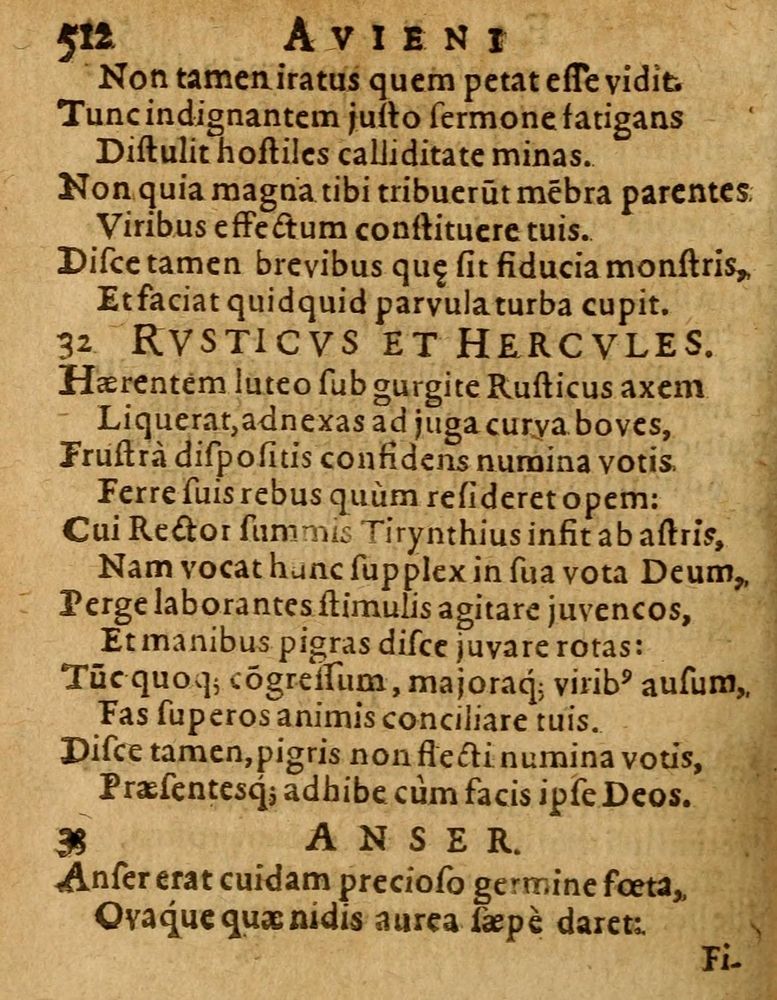 512 AVIENI
Non tamen iratus quem petat eſſe vidit.
Tunc indignantem juſto ſermone fatigans
Diſtulit hoſtiles calliditate minas.
Non quia magna tibi tribuerūt mēbra parentes
Viribus effectum conſtituere tuis.
Diſce tamen brevibus quę ſit fiducia monſtris,
Et faciat quidquid parvula turba cupit.
32 RVSTICVS ET HERCVLES.
Hærentem luteo ſub gurgite Ruſticus axem
Liquerat, adnexas ad juga curva boves,
Fruſtrà diſpoſitis confidens numina votis
Ferre ſuis rebus quùm reſideret opem:
Cui Rector ſummis Tirynthius infit ab aſtris,
Nam vocat hunc ſupplex in ſua vota Deum,
Perge laborantes ſtimulis agitare juvencos,
Et manibus pigras diſce juvare rotas:
Tūc quoq; cōgreſſum, majoraq́; viribꝰ auſum,
Fas ſuperos animis conciliare tuis.
Diſce tamen, pigris non flecti numina votis,
Præſentesq́; adhibe cùm facis ipſe Deos.
33 ANSER.
Anſer erat cuidam precioſo germine fœta,
Ovaq́ue quæ nidis aurea ſæpè daret:
Fi-